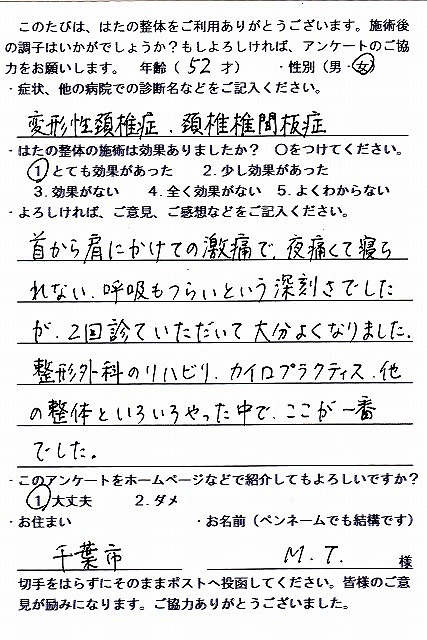 このたびは、はたの整体をご利用ありがとうございます。施術後
の調子はいかがでしょうか？もしよろしければ、アンケートのご協
力をお願いします。 年齢（ 52 才） ・性別（男・女）
・症状、他の病院での診断名などをご記入ください。
変形性頚椎症、頚椎椎間板症
・はたの整体の施術は効果ありましたか？ ○をつけてください。
1 とても効果があった 2. 少し効果があった
3. 効果がない 4. 全く効果がない 5. よくわからない
・よろしければ、ご意見、ご感想などをご記入ください。
首から肩にかけての激痛で、夜痛くて寝ら
れない、呼吸もつらいという深刻さでした
が、2回診ていただいて大分よくなりました。
整形外科のリハビリ、カイロプラクティス、他
の整体といろいろやった中で、ここが一番
でした。
・このアンケートをホームページなどで紹介してもよろしいですか？
1 大丈夫 2. ダメ
・お住まい ・お名前（ペンネームでも結構です）
千葉市 M. T. 様
切手をはらずにそのままポストへ投函してください。皆様のご意
見が励みになります。ご協力ありがとうございました。